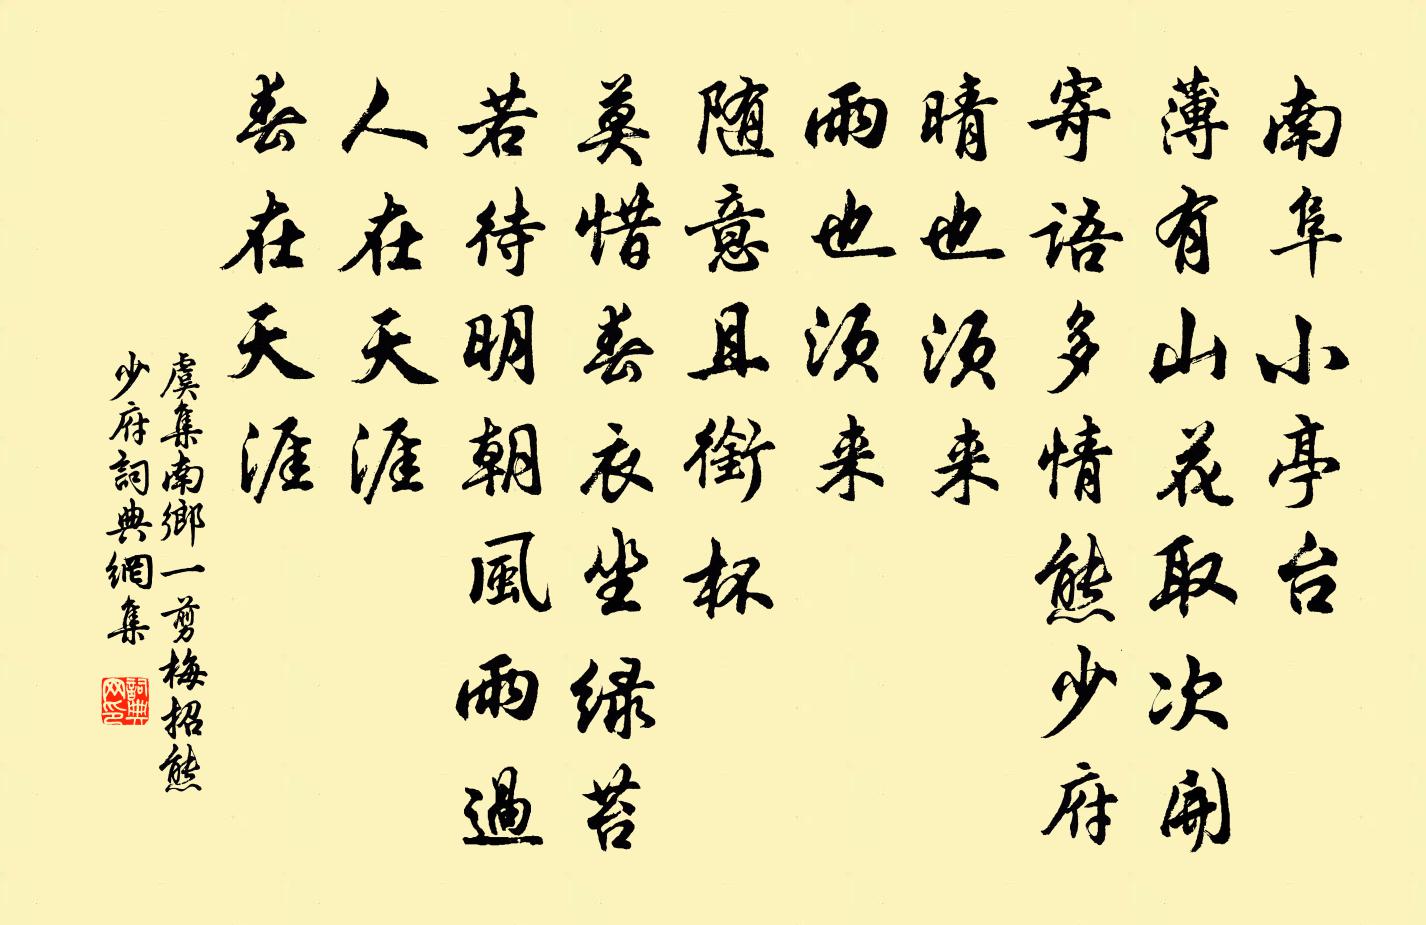 南阜小亭台
薄有山花取次開
寄語多情熊少府
晴也須来
雨也須来
随意且銜杯
莫惜春衣坐緑苔
若待明朝風雨過
人在天涯
春在天涯
虞集南鄉一剪梅招熊
少府詞典網集
詞典
网印